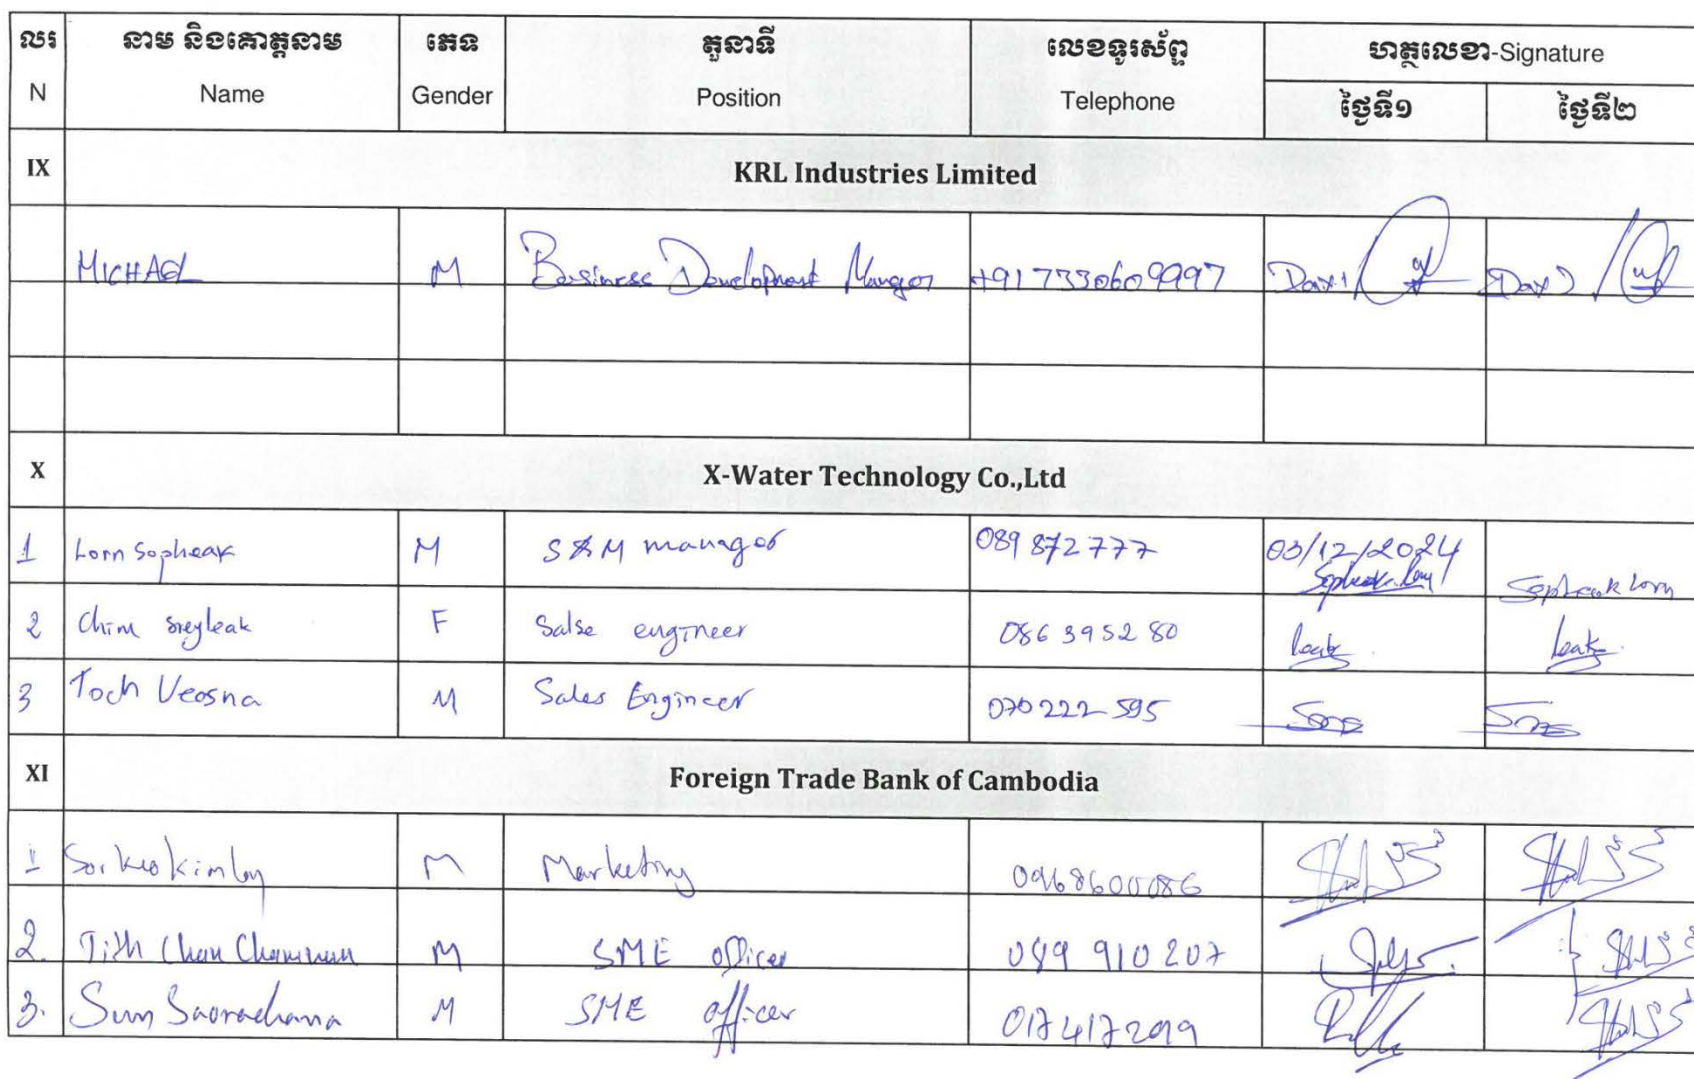 ល.រ នាម និងគោត្តនាម ភេទ តួនាទី លេខទូរស័ព្ទ ហត្ថលេខា-Signature
N Name Gender Position Telephone ថ្ងៃទី១ ថ្ងៃទី២
IX KRL Industries Limited
MICHAEL M Business Development Manger +917330609997 Day 1 Day 2
X X-Water Technology Co.,Ltd
1 Lorn Sopheak M S&M manager 089 872 777 03/12/2024
Sopheak Lorn Sopheak Lorn
2 Chim sreyleak F Salse engineer 086 395280 leak leak
3 Toch Veosna M Sales Engineer 070222 595
XI Foreign Trade Bank of Cambodia
1 M Marketing 0968600086
2. Tith Chan M SME officer 099 910 207
3. Sun M SME officer 017417299